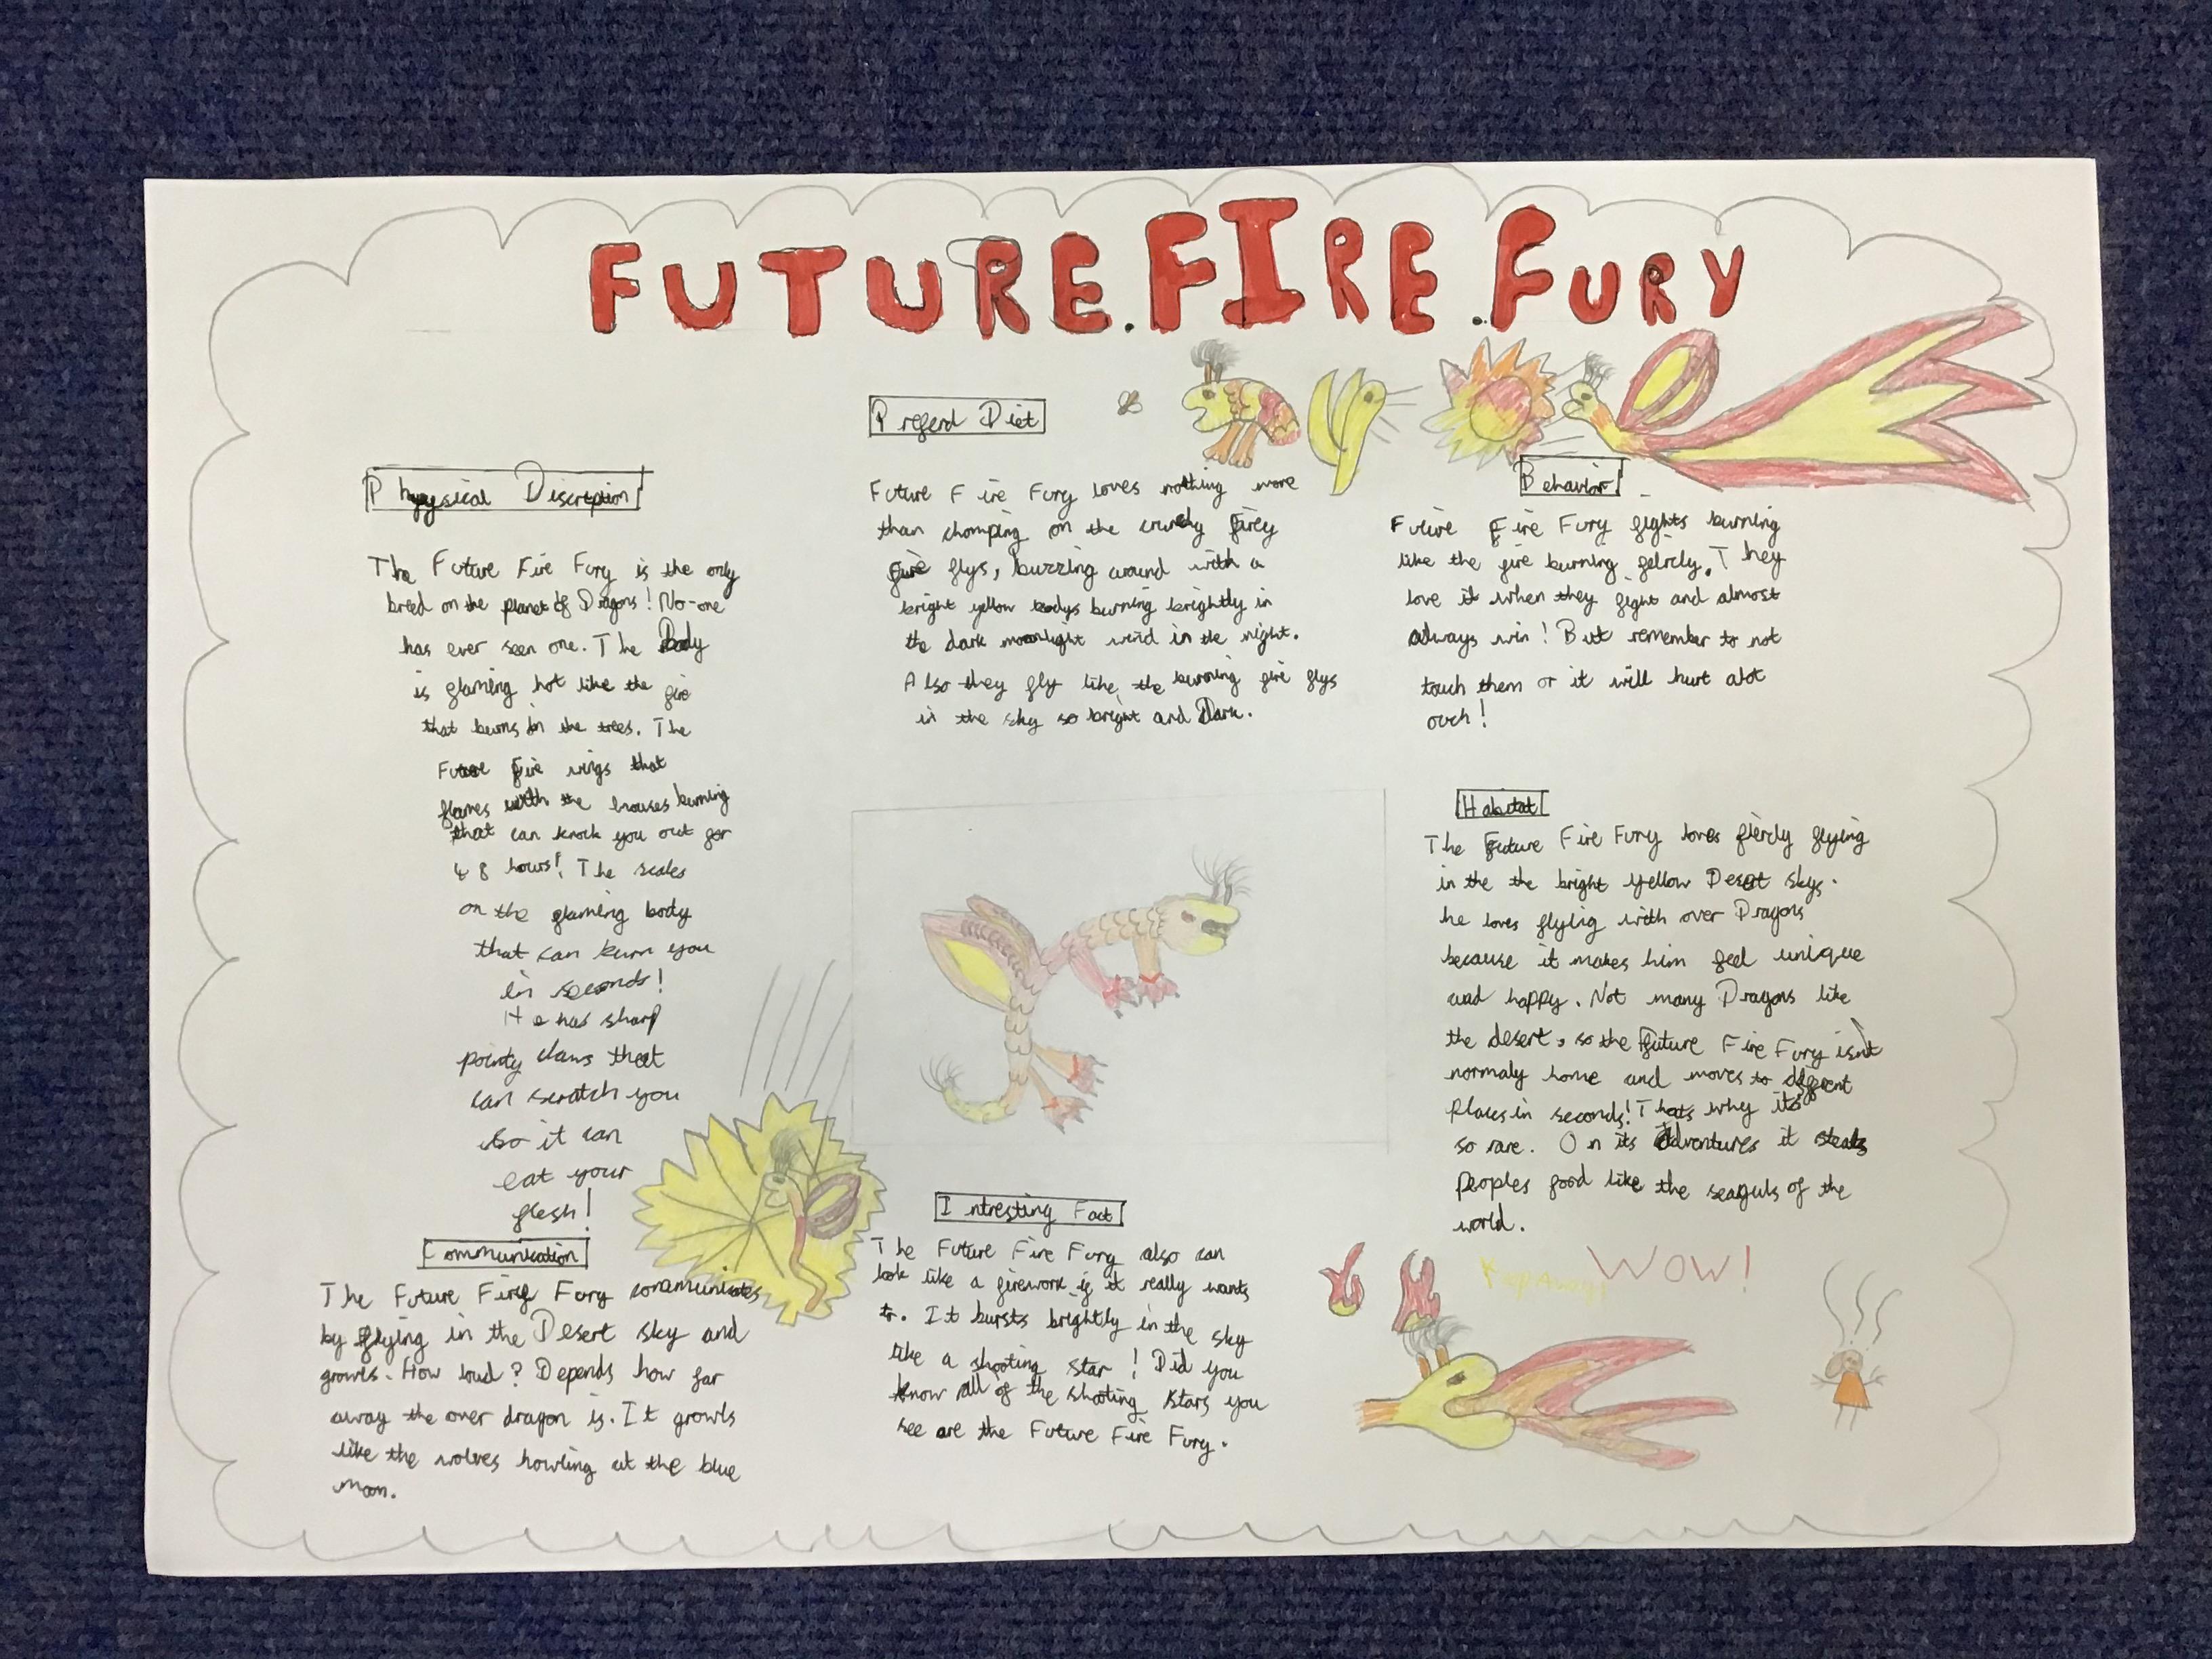 FUTURE.FIRE.FURY
Phyysical Discreption
The Future Fire Fury is the only
breed on the planet of Dragons! No-one
has ever seen one. The Body
is flaming hot like the fire
that burns in the trees. The
Future Fire wings that
flames with the houses burning
that can knock you out for
48 hours! The scales
on the flaming body
that can burn you
in seconds!
He has sharp
pointy claws that
can scratch you
so it can
eat your
flesh!
Communication
The Future Fire Fury communicates
by flying in the Desert sky and
growls. How loud? Depends how far
away the over dragon is. It growls
like the wolves howling at the blue
moon.
Preferd Diet
Future Fire Fury loves nothing more
than chomping on the crunchy firey
fire flys, buzzing around with a
bright yellow bodys burning brightly in
the dark moonlight wind in the night.
Also they fly like the burning fire flys
in the sky so bright and Dark.
Intresting Fact
The Future Fire Fury also can
look like a firework if it really wants
to. It bursts brightly in the sky
like a shooting star! Did you
know all of the shooting stars you
see are the Future Fire Fury.
Behavior
Future Fire Fury fights burning
like the fire burning felrcly. They
love it when they fight and almost
always win! But remember to not
touch them or it will hurt alot
ouch!
Habitat
The Future Fire Fury loves fiercly flying
in the the bright yellow Desert skys.
he loves flying with over Dragons
because it makes him feel unique
and happy. Not many Dragons like
the desert, so the Future Fire Fury isn't
normaly home and moves to different
places in seconds! Thats why its
so rare. On its Adventures it steals
peoples food like the seaguls of the
world.
Keep Away!
WOW!